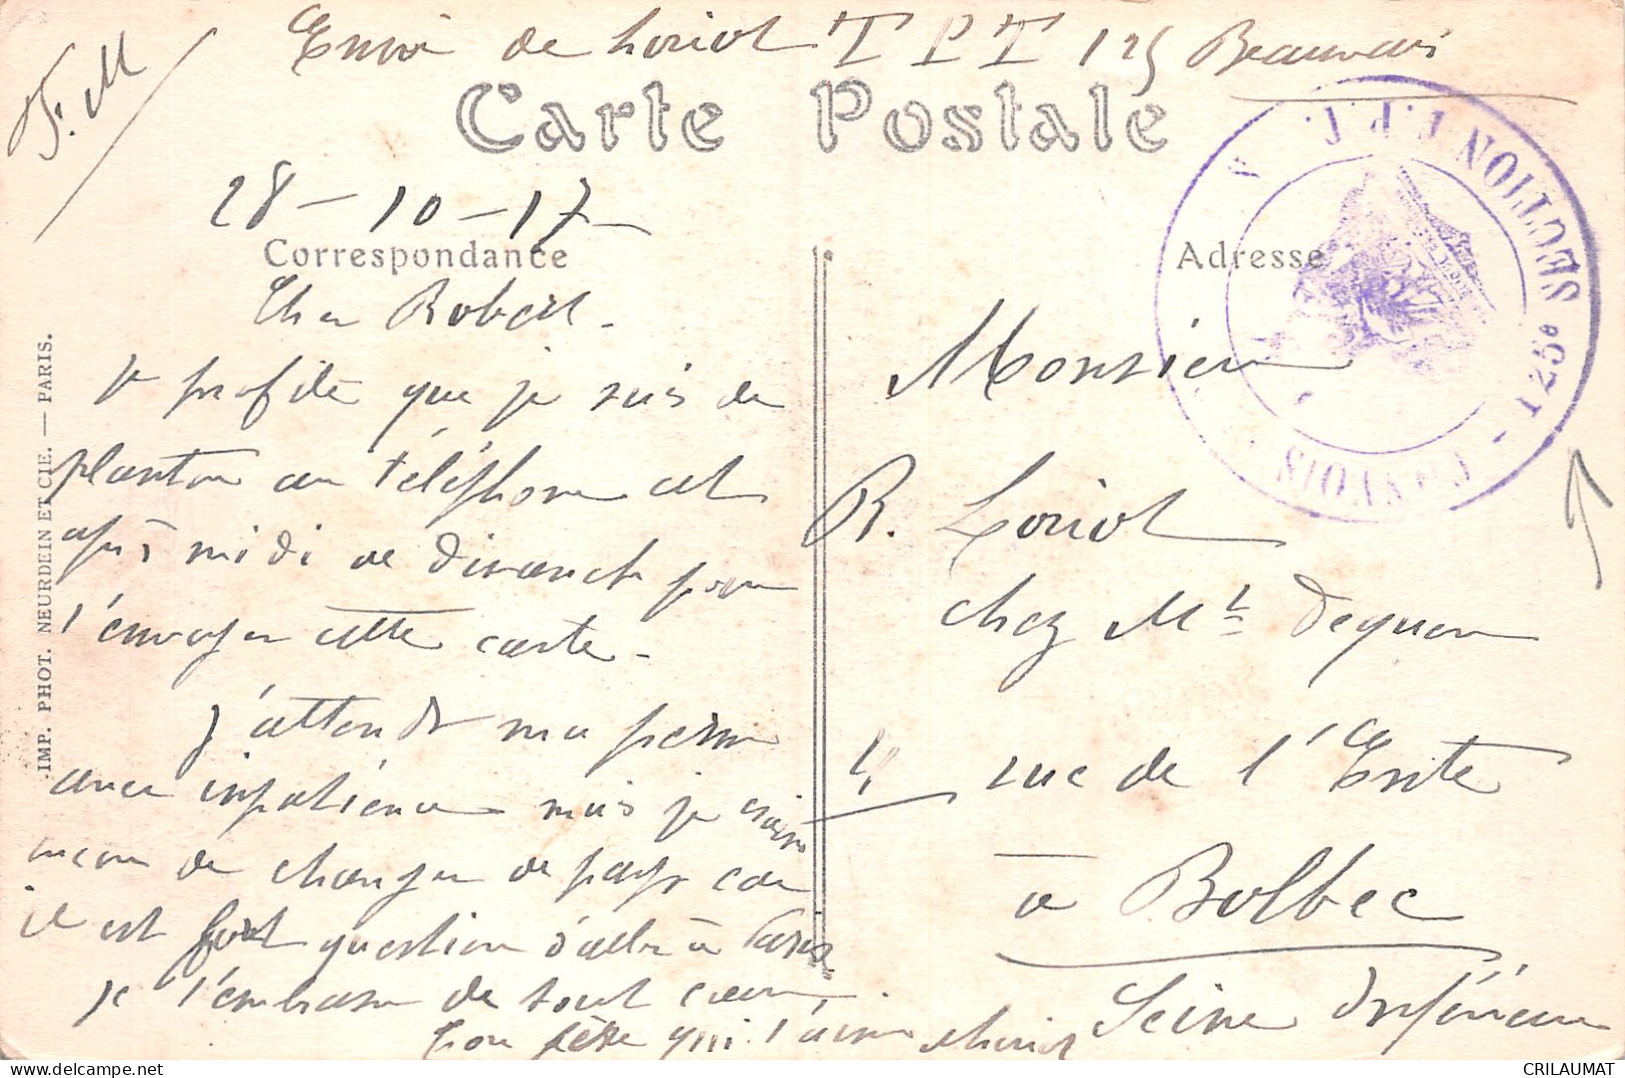 F.M
Envoi de Loriot T P T 125 Beauvais
Carte Postale
28-10-17-
Correspondance
Cher Robert.
Je profite que je suis de
planton au téléphone cet
après midi de dimanche pour
t'envoyer cette carte.
J'attends ma perm
avec impatience mais je crains
encore de changer de pays car
il est fort question d'aller à Paris
je t'embrasse de tout cœur
Ton père qui t'aime Loriot
IMP. PHOT. NEURDEIN ET CIE. — PARIS.
Adresse
SECTION T.P.T.
125e
CONVOIS
Monsieur
R. Loriot
chez Mr
rue de l'
à Bolbec
Seine Inférieure
CRILAUMAT